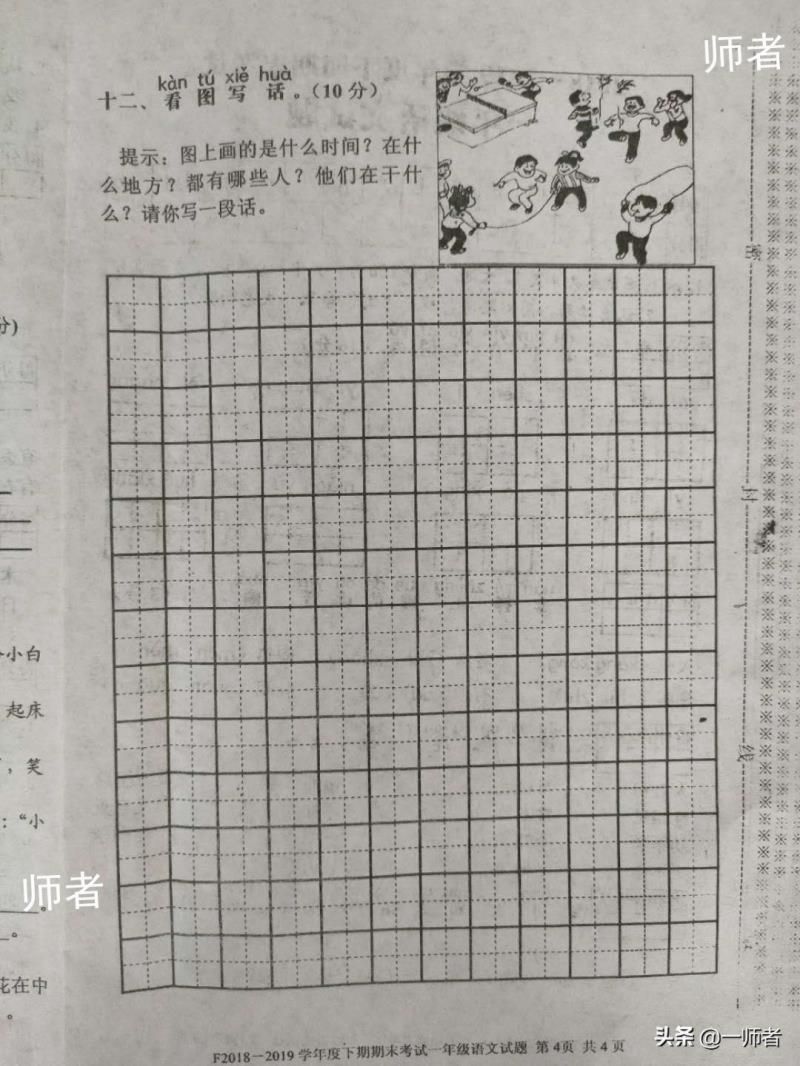 师者
kàn tú xiě huà
十二、看图写话。(10分)
提示:图上画的是什么时间?在什
么地方?都有哪些人?他们在干什
么?请你写一段话。
分)
密
封
线
小白
起床
,笑
:“小
师者
。
。
花在中
。
F2018—2019学年度下期期末考试一年级语文试题 第4页 共4页
头条 @一师者